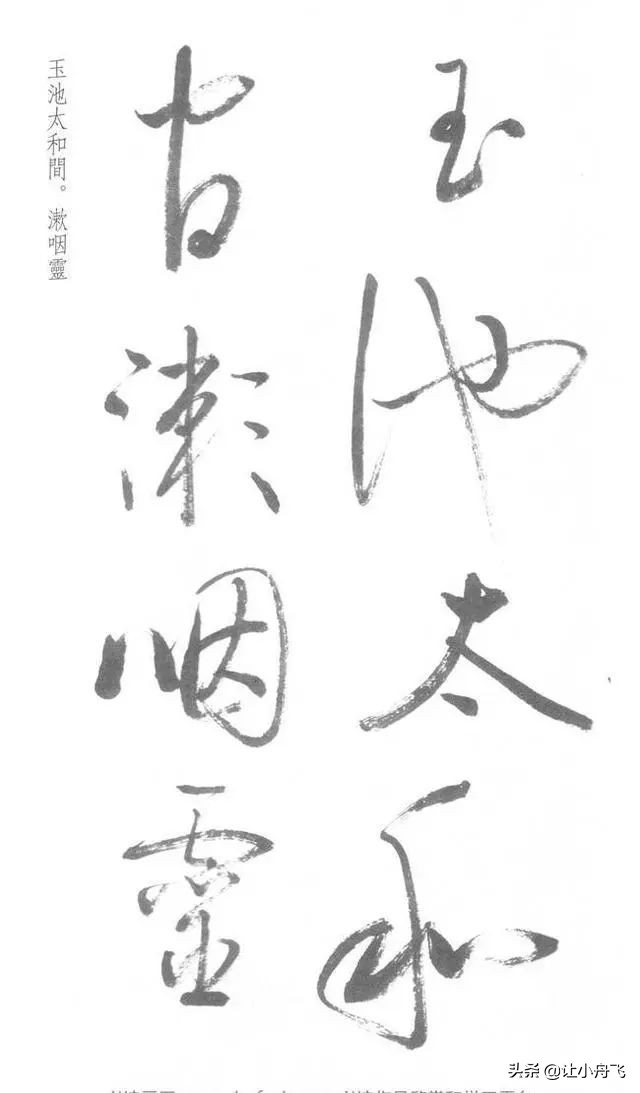 玉池太和
官漱咽靈
玉池太和間。漱咽靈
头条 @让小舟飞